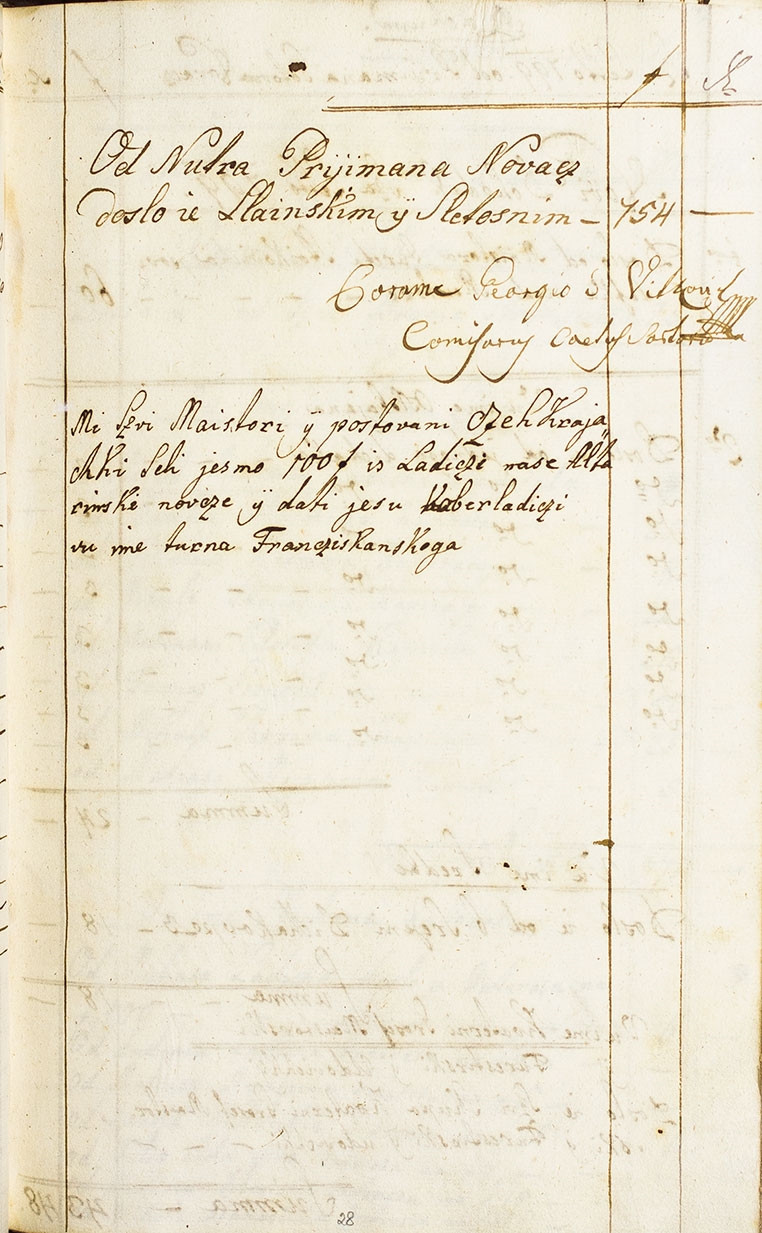 f X
Od Nutra Prijimana Novacz
doslo ie Llainskim ÿ Sletosnim – 754 —
Corame Georgio
Comisarus Caetus
Mi Szvi Maistori ÿ postovani Czehkraja„
chki Seli jezmo 100 f iz Ladiczi nase Alta
rinske novcze ÿ dati jesu Vuberladiczi
vu ime turna Francziskanskoga
28